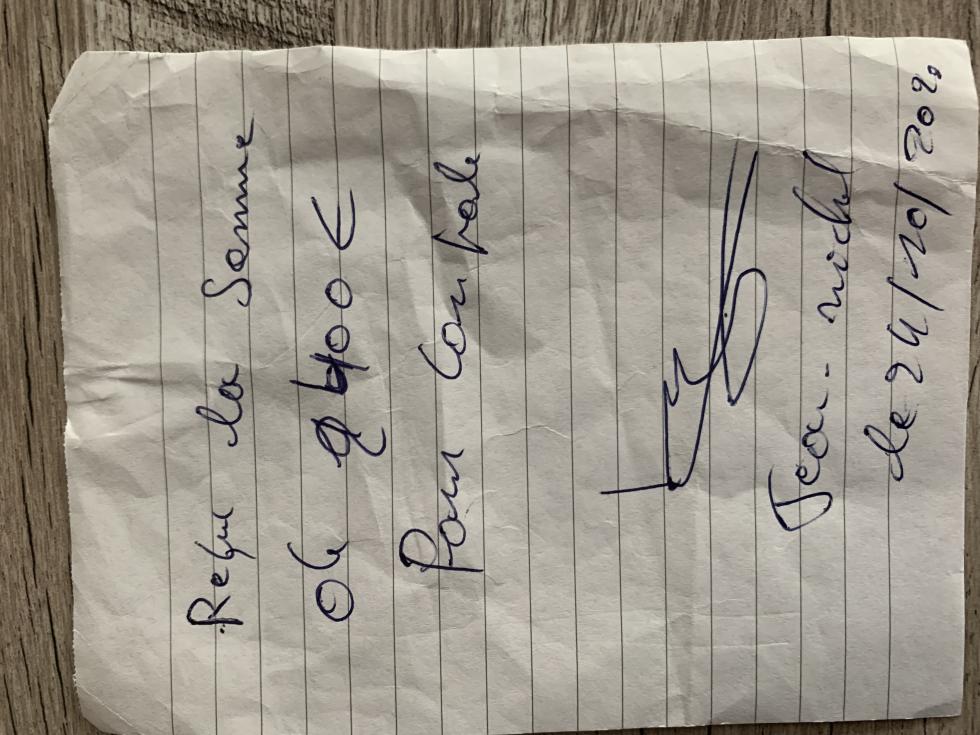 Reçu la Somme
de 9400 €
Pour Compte
Jean-michel
Le 24/10/2020